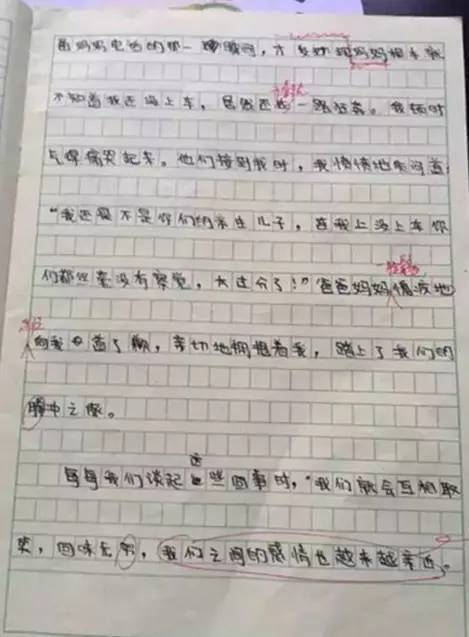 妈妈电话的那一瞬间，才发现妈妈根本就
不知道我还没上车，居然还一路狂奔。我顿时
气得痛哭起来。他们接到我时，我愤愤地质问道：
“我还是不是你们的亲生儿子，连我上没上车你
们都丝毫没有察觉，太过分了！”爸爸妈妈愧疚地
向我道了歉，亲切地拥抱着我，踏上了我们的
之旅。
每每我们谈起这些回事时，“我们就会互相取
笑，回味无穷，我们之间的感情也越来越亲近。